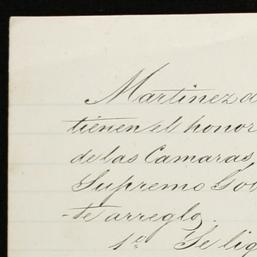 Martinez d
tienen el honor
de las Camaras
Supremo Gob
te arreglo.
1º Se liq